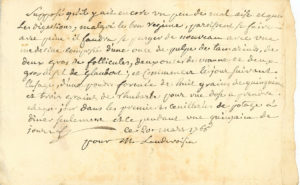 Supposé qu'il y ait encore un peu de mal aise et que
les digestions, malgré le bon régime, paroissent se faire
avec peine, il faudra se purger de nouveau avec une
médecine composée d'une once de pulpe de tamarins, de
deux gros de follicules, deux onces de manne et deux
gros de sel de glauber, et commencer le jour suivant
l'usage d'une poudre formée de huit grains de quinquina
et trois grains de rhubarbe pour une dose à prendre
chaque jour dans les premières cuillerées de potage à
diner seulement et ce pendant une quinzaine de
jours. ce 20 mars
pour Mr